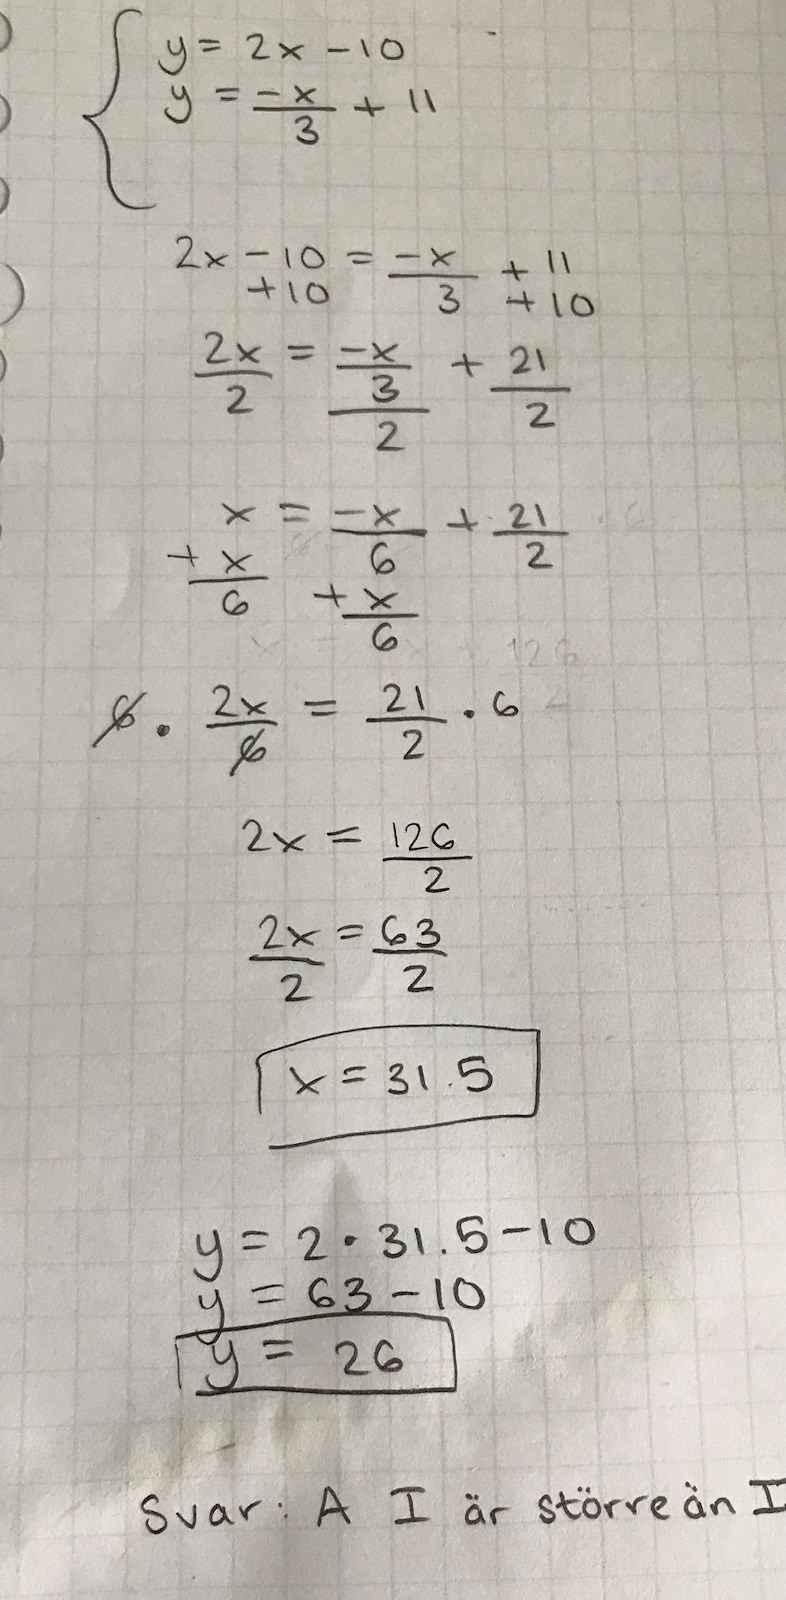 y = 2x - 10
y = -x/3 + 11
2x - 10 = -x/3 + 11
+10 +10
2x/2 = -x/3/2 + 21/2
x = -x/6 + 21/2
+ x/6 + x/6
6 · 2x/6 = 21/2 · 6
2x = 126/2
2x/2 = 63/2
x = 31.5
y = 2 · 31.5 - 10
y = 63 - 10
y = 26
Svar: A I är större än I